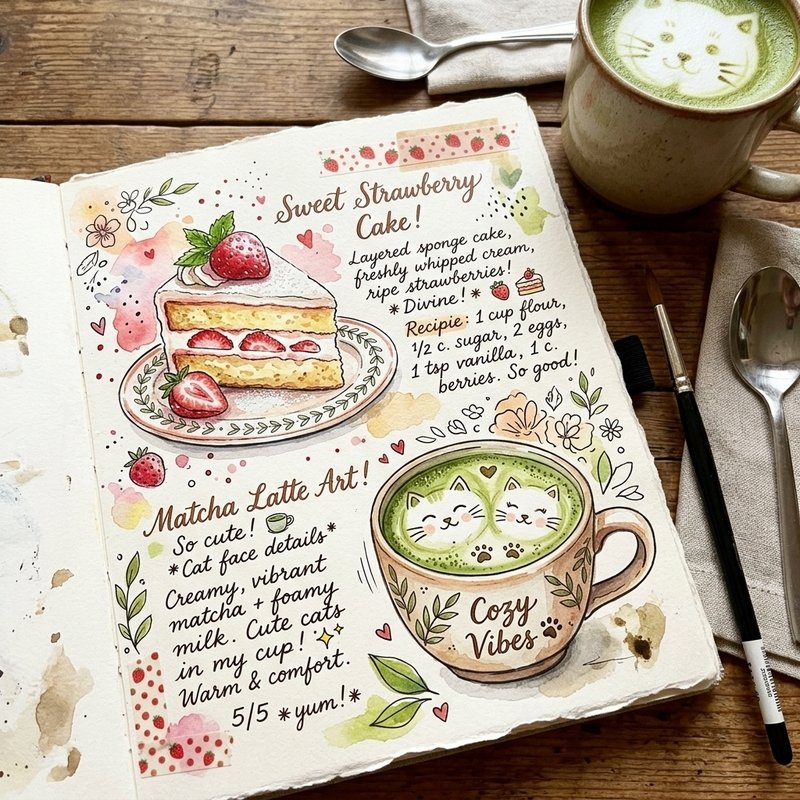 Sweet Strawberry
Cake!
Layered sponge cake,
freshly whipped cream,
ripe strawberries!
*Divine!*
Recipie: 1 cup flour,
1/2 c. sugar, 2 eggs,
1 tsp vanilla, 1 c.
berries. So good!
Matcha Latte Art!
So cute!
*Cat face details*
Creamy, vibrant
matcha + foamy
milk. Cute cats
in my cup!
Warm & comfort.
5/5 *yum!*
Cozy
Vibes